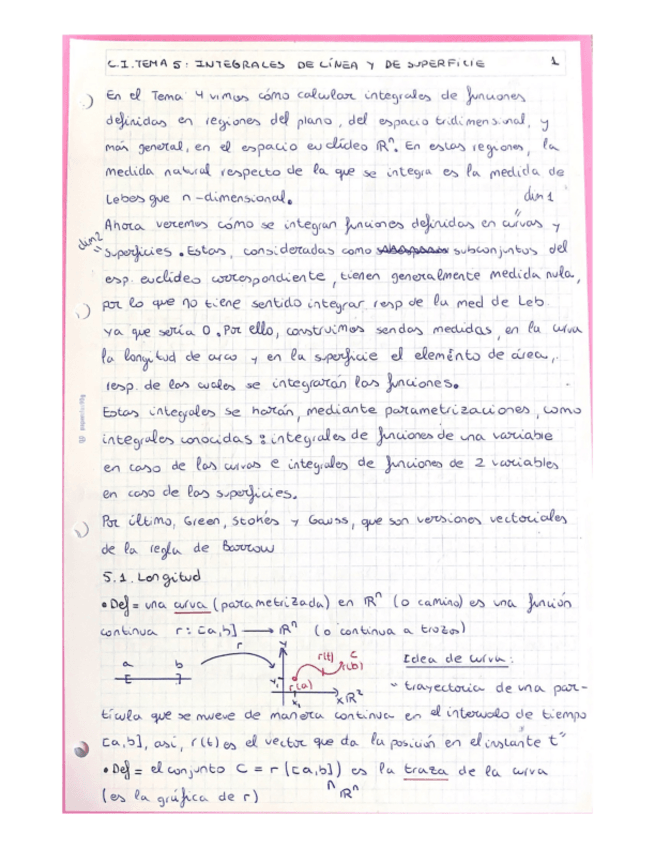 C.I. TEMA 5: INTEGRALES DE LÍNEA Y DE SUPERFICIE 1
En el Tema 4 vimos cómo calcular integrales de funciones
definidas en regiones del plano, del espacio tridimensional, y
más general, en el espacio euclídeo ℝⁿ. En estas regiones, la
medida natural respecto de la que se integra es la medida de
Lebesgue n-dimensional.
dim 1
Ahora veremos cómo se integran funciones definidas en curvas y
dim 2
superficies. Estas, consideradas como subconjuntos del
esp. euclídeo correspondiente, tienen generalmente medida nula,
por lo que no tiene sentido integrar resp de la med de Leb.
ya que sería 0. Por ello, construimos sendas medidas, en la curva
la longitud de arco y en la superficie el elemento de área,
resp. de las cuales se integrarán las funciones.
Estas integrales se harán, mediante parametrizaciones, como
integrales conocidas: integrales de funciones de una variable
en caso de las curvas e integrales de funciones de 2 variables
en caso de las superficies.
Por último, Green, Stokes y Gauss, que son versiones vectoriales
de la regla de Barrow
5.1. Longitud
• Def = una curva (parametrizada) en ℝⁿ (o camino) es una función
continua r: [a,b] → ℝⁿ (o continua a trozos)
a b r y r(t) C r(b) r(a) y₁ x₁ x ℝ² Idea de curva:
"trayectoria de una par-
tícula que se mueve de manera continua en el intervalo de tiempo
[a,b], así, r(t) es el vector que da la posición en el instante t"
• Def = el conjunto C = r([a,b]) es la traza de la curva
(es la gráfica de r) ∩ ℝⁿ